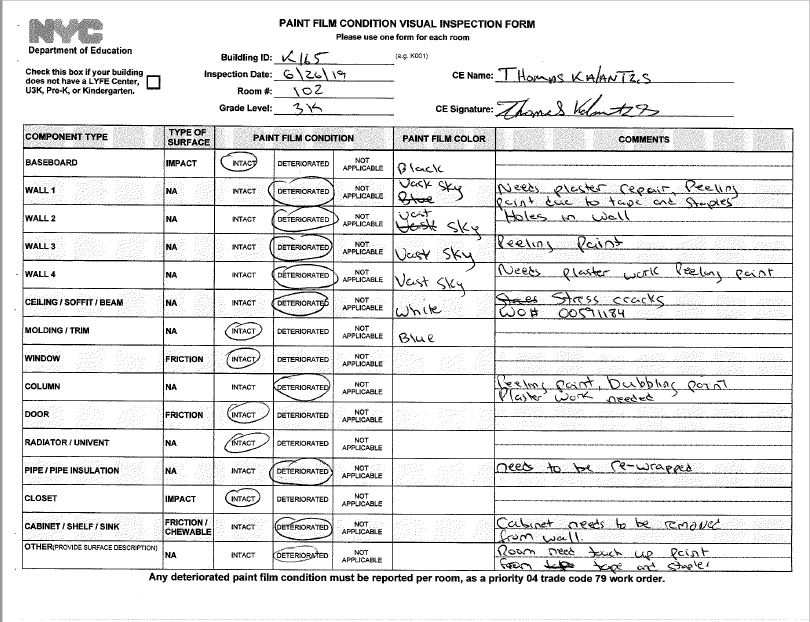 NYC
Department of Education
PAINT FILM CONDITION VISUAL INSPECTION FORM
Please use one form for each room
Check this box if your building
does not have a LYFE Center,
U3K, Pre-K, or Kindergarten.
Building ID: K165 (e.g. K001)
Inspection Date: 6/26/19
Room #: 102
Grade Level: 3K
CE Name: THOMAS KALANTZIS
CE Signature: Thomas Kalantzis
COMPONENT TYPE TYPE OF SURFACE PAINT FILM CONDITION PAINT FILM COLOR COMMENTS
BASEBOARD IMPACT INTACT DETERIORATED NOT APPLICABLE Black
WALL 1 NA INTACT DETERIORATED NOT APPLICABLE Vask Sky Blue Needs plaster repair, Peeling
paint due to tape and staples
WALL 2 NA INTACT DETERIORATED NOT APPLICABLE Vast Vask SKY Holes in wall
WALL 3 NA INTACT DETERIORATED NOT APPLICABLE Vast Sky Peeling paint
WALL 4 NA INTACT DETERIORATED NOT APPLICABLE Vast Sky Needs plaster work Peeling paint
CEILING / SOFFIT / BEAM NA INTACT DETERIORATED NOT APPLICABLE White Stress cracks
WO# 00591184
MOLDING / TRIM NA INTACT DETERIORATED NOT APPLICABLE Blue
WINDOW FRICTION INTACT DETERIORATED NOT APPLICABLE
COLUMN NA INTACT DETERIORATED NOT APPLICABLE Peeling paint, bubbling paint
Plaster work needed
DOOR FRICTION INTACT DETERIORATED NOT APPLICABLE
RADIATOR / UNIVENT NA INTACT DETERIORATED NOT APPLICABLE
PIPE / PIPE INSULATION NA INTACT DETERIORATED NOT APPLICABLE needs to be re-wrapped
CLOSET IMPACT INTACT DETERIORATED NOT APPLICABLE
CABINET / SHELF / SINK FRICTION / CHEWABLE INTACT DETERIORATED NOT APPLICABLE Cabinet needs to be removed
from wall.
OTHER (PROVIDE SURFACE DESCRIPTION) NA INTACT DETERIORATED NOT APPLICABLE Room need touch up paint
from tape and stapler
Any deteriorated paint film condition must be reported per room, as a priority 04 trade code 79 work order.